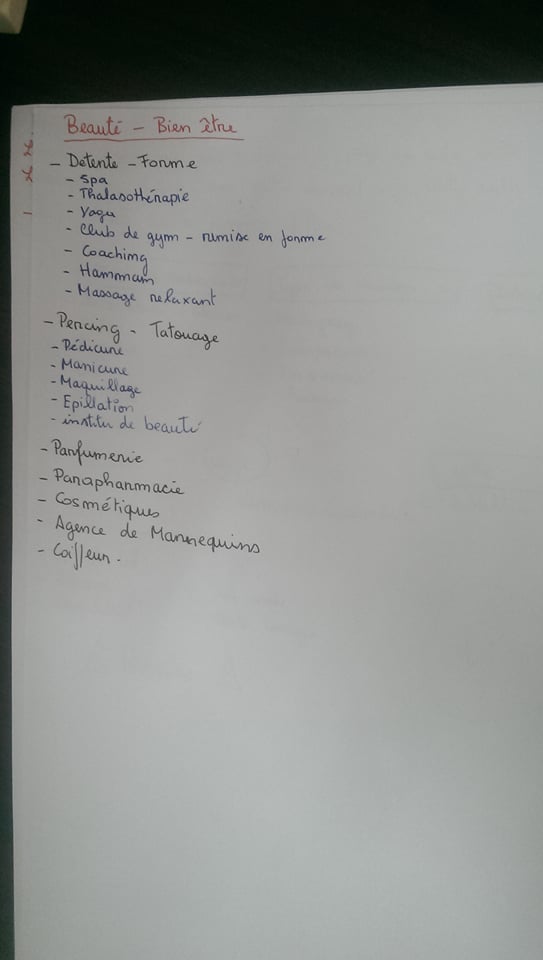 Beauté - Bien être
- Detente - Forme
- Spa
- Thalasothérapie
- Yoga
- Club de gym - remise en forme
- Coaching
- Hammam
- Massage relaxant
- Percing - Tatouage
- Pédicure
- Manicure
- Maquillage
- Epillation
- institu de beauté
- Parfumerie
- Parapharmacie
- Cosmétiques
- Agence de Mannequins
- Coiffeur.